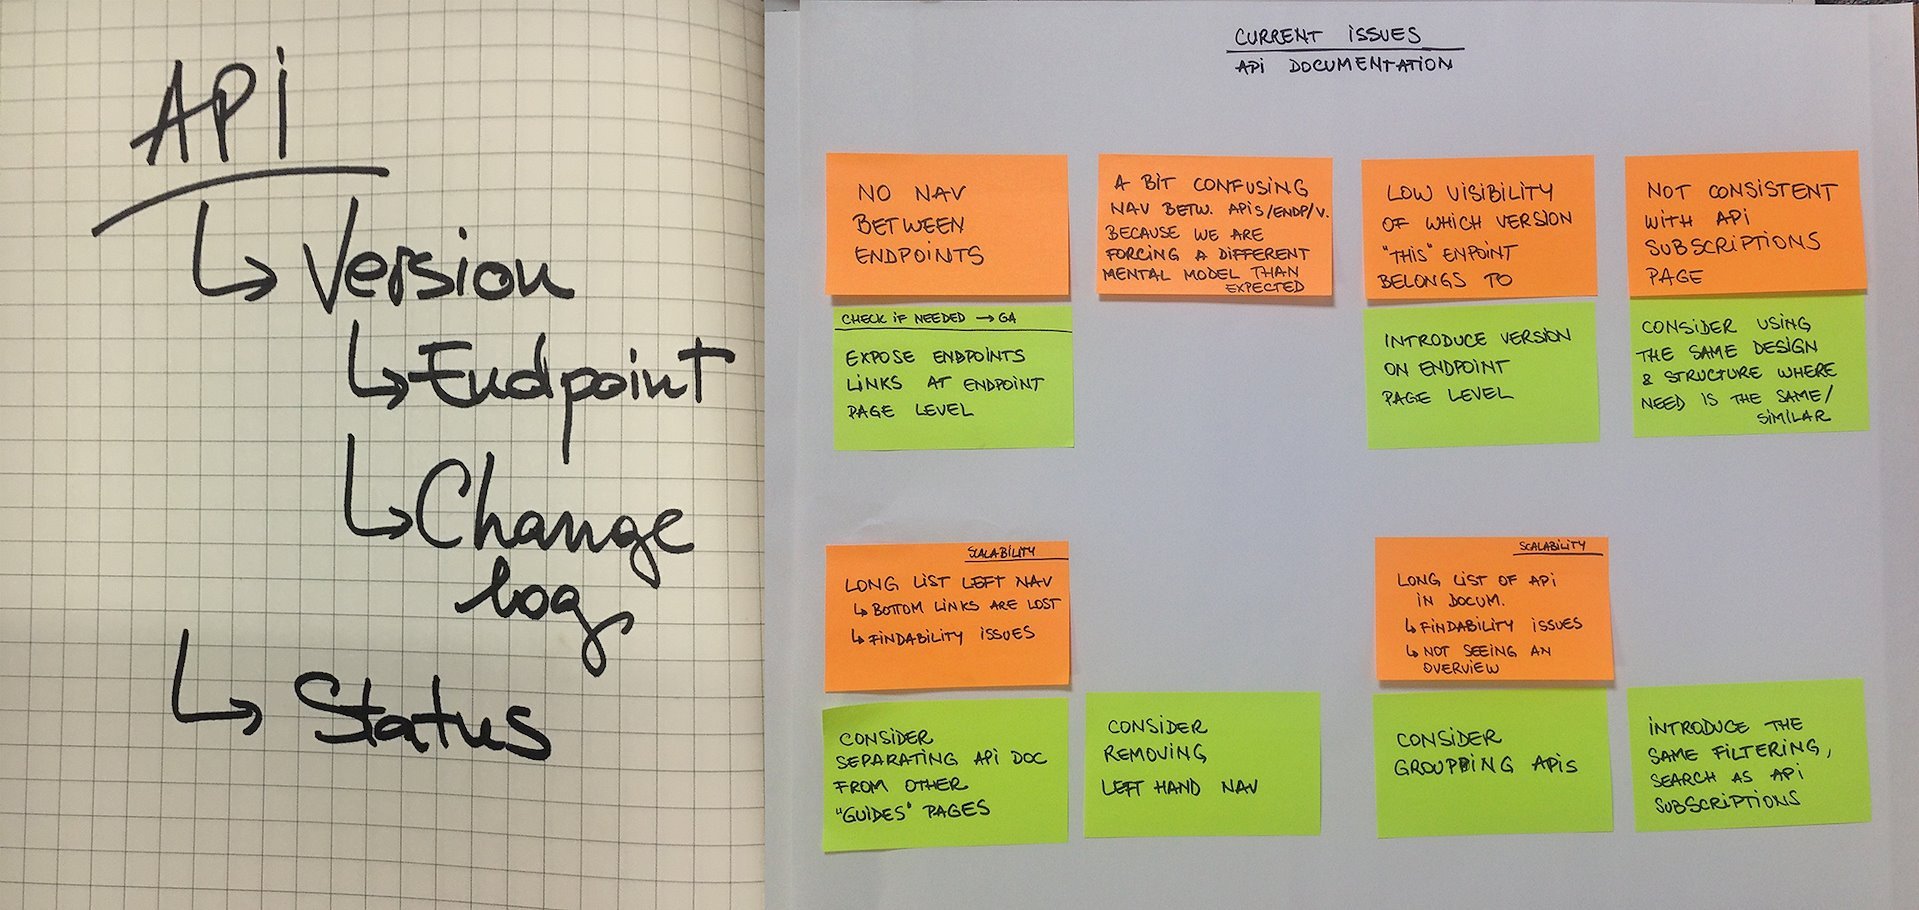 API
↳ Version
↳ Endpoint
↳ Change
log
↳ Status
CURRENT ISSUES
API DOCUMENTATION
NO NAV
BETWEEN
ENDPOINTS
CHECK IF NEEDED → GA
EXPOSE ENDPOINTS
LINKS AT ENDPOINT
PAGE LEVEL
A BIT CONFUSING
NAV BETW. APIS/ENDP/V.
BECAUSE WE ARE
FORCING A DIFFERENT
MENTAL MODEL THAN
EXPECTED
LOW VISIBILITY
OF WHICH VERSION
"THIS" ENPOINT
BELONGS TO
INTRODUCE VERSION
ON ENDPOINT
PAGE LEVEL
NOT CONSISTENT
WITH API
SUBSCRIPTIONS
PAGE
CONSIDER USING
THE SAME DESIGN
& STRUCTURE WHERE
NEED IS THE SAME/
SIMILAR
SCALABILITY
LONG LIST LEFT NAV
↳ BOTTOM LINKS ARE LOST
↳ FINDABILITY ISSUES
CONSIDER
SEPARATING API DOC
FROM OTHER
"GUIDES" PAGES
CONSIDER
REMOVING
LEFT HAND NAV
SCALABILITY
LONG LIST OF API
IN DOCUM.
↳ FINDABILITY ISSUES
↳ NOT SEEING AN
OVERVIEW
CONSIDER
GROUPPING APIS
INTRODUCE THE
SAME FILTERING,
SEARCH AS API
SUBSCRIPTIONS